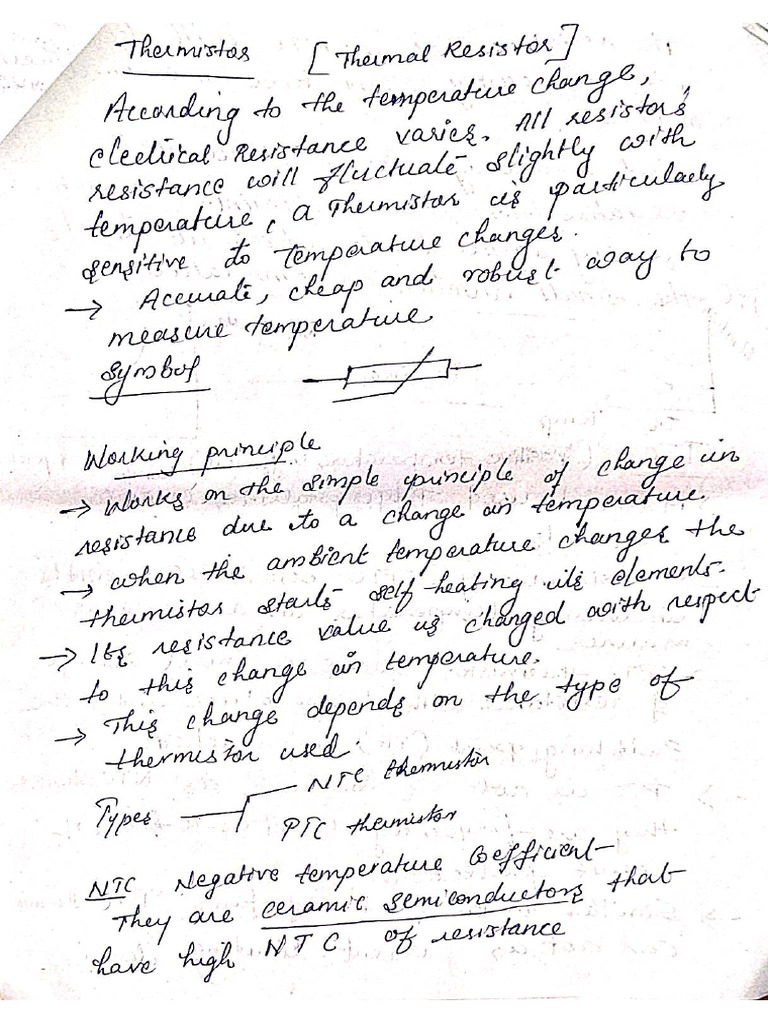 Thermistor [Thermal Resistor]
According to the temperature change,
electrical Resistance varies. All resistors
resistance will fluctuate slightly with
temperature, a Thermistor is particularly
sensitive to temperature changes.
→ Accurate, cheap and robust way to
measure temperature
Symbol
Working principle
→ Works on the simple principle of change in
resistance due to a change in temperature.
→ when the ambient temperature changes the
thermistor starts self-heating its elements.
→ Its resistance value is changed with respect
to this change in temperature.
→ This change depends on the type of
thermistor used.
NTC thermistor
Types
PTC thermistor
NTC Negative temperature Coefficient
They are ceramic semiconductors that
have high NTC of resistance